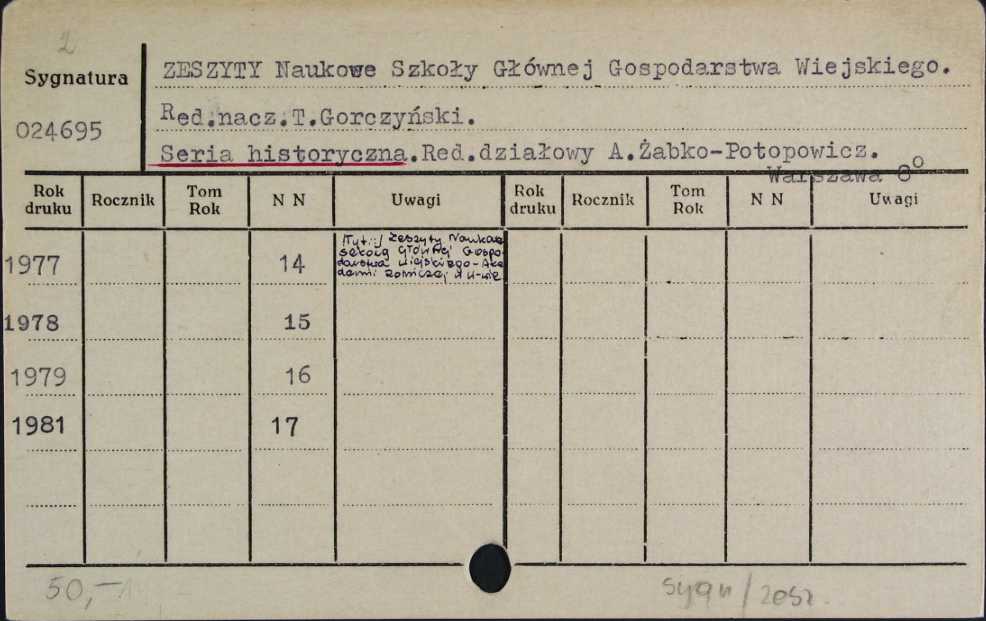 2
Sygnatura
024695
ZESZYTY Naukowe Szkoły Głównej Gospodarstwa Wiejskiego.
Red.nacz.T.Gorczyński.
Seria historyczna.Red.działowy A.Żabko-Potopowicz.
Warszawa 8°
Rok druku Rocznik Tom Rok N N Uwagi Rok druku Rocznik Tom Rok N N Uwagi
1977 14
/Tyt.:/ Zeszyty Naukowe
Szkoły Głównej Gospo-
darstwa Wiejskiego-Aka
demii Rolniczej w W-wie
1978 15
1979 16
1981 17
50,-
sygn/zesz.